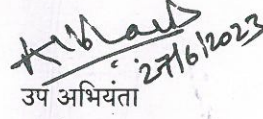 27/6/2023
उप अभियंता